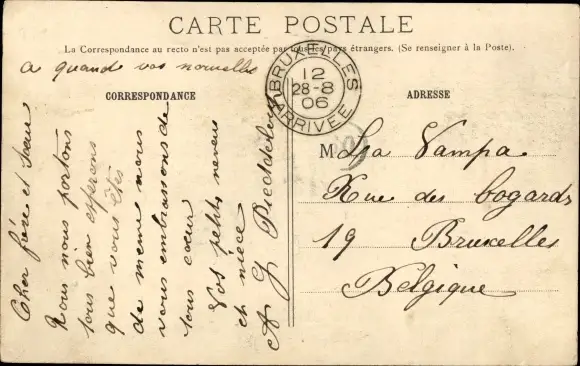 CARTE POSTALE
La Correspondance au recto n'est pas acceptée par tous les pays étrangers. (Se renseigner à la Poste).
a quand vos nouvelles
CORRESPONDANCE
ADRESSE
BRUXELLES
12
28-8
06
ARRIVÉE
Cher frère et Sœur
Nous nous portons
tous bien esperons
que vous êtes
de meme nous
vous embrassons de
tous cœur
Vos petits neveu
et nièce
A G
M Vampa
Rue des bogards
19 Bruxelles
Belgique